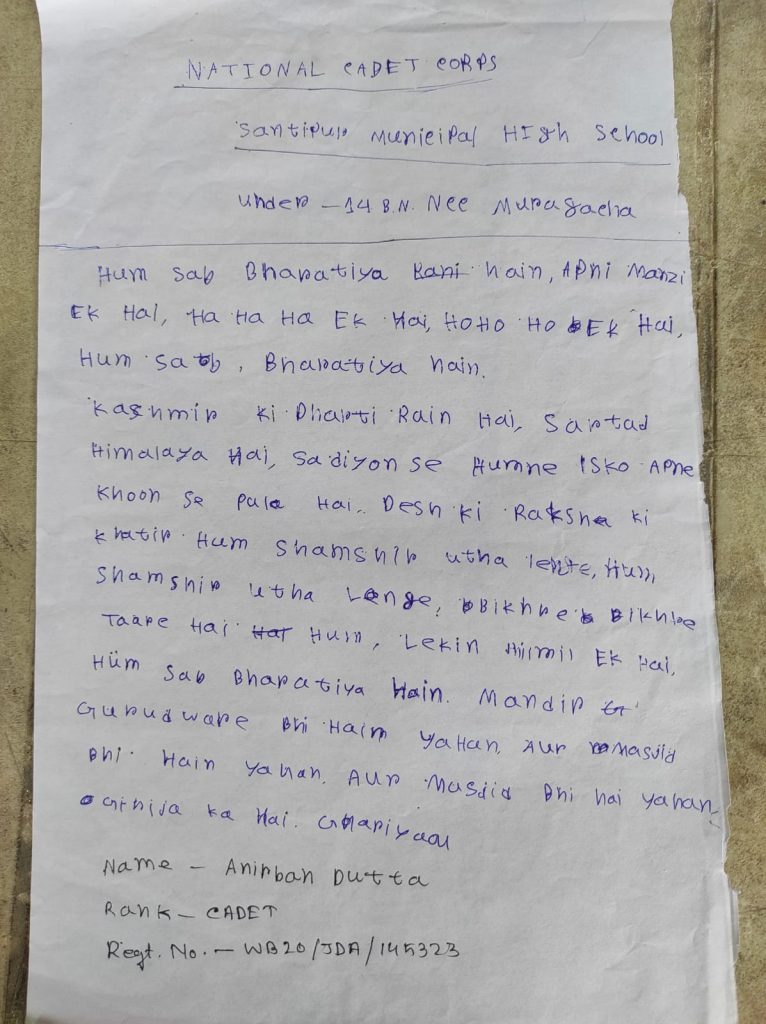 NATIONAL CADET CORPS
Santipur Municipal HIgh School
Under - 14 B.N. Ncc Muragacha
Hum Sab Bharatiya hain, APni Manzi
EK Hai, Ha Ha Ha EK Hai, HoHo Ho EK Hai,
Hum Sab, Bharatiya hain.
Kashmir ki Dharti Rain Hai, Sartad
Himalaya Hai, Sadiyon se Humne ISKo APne
Khoon Se Pala Hai.. Desh ki Raksha ki
Khatir Hum Shamshir utha lenge, Hum
Shamshir utha Lenge, Bikhre Bikhre
Taare Hai Hum, Lekin Jhilmil EK Hai,
Hum Sab Bharatiya Hain. Mandir
Gurudware Bhi Hain yaHan, Aur Masjid
Bhi Hain yahan. Aur Masjid Bhi hai yahan
Girija Ka Hai. Ghariyaal
Name - Anirban Dutta
Rank - CADET
Regt. No. - WB20/JDA/145323